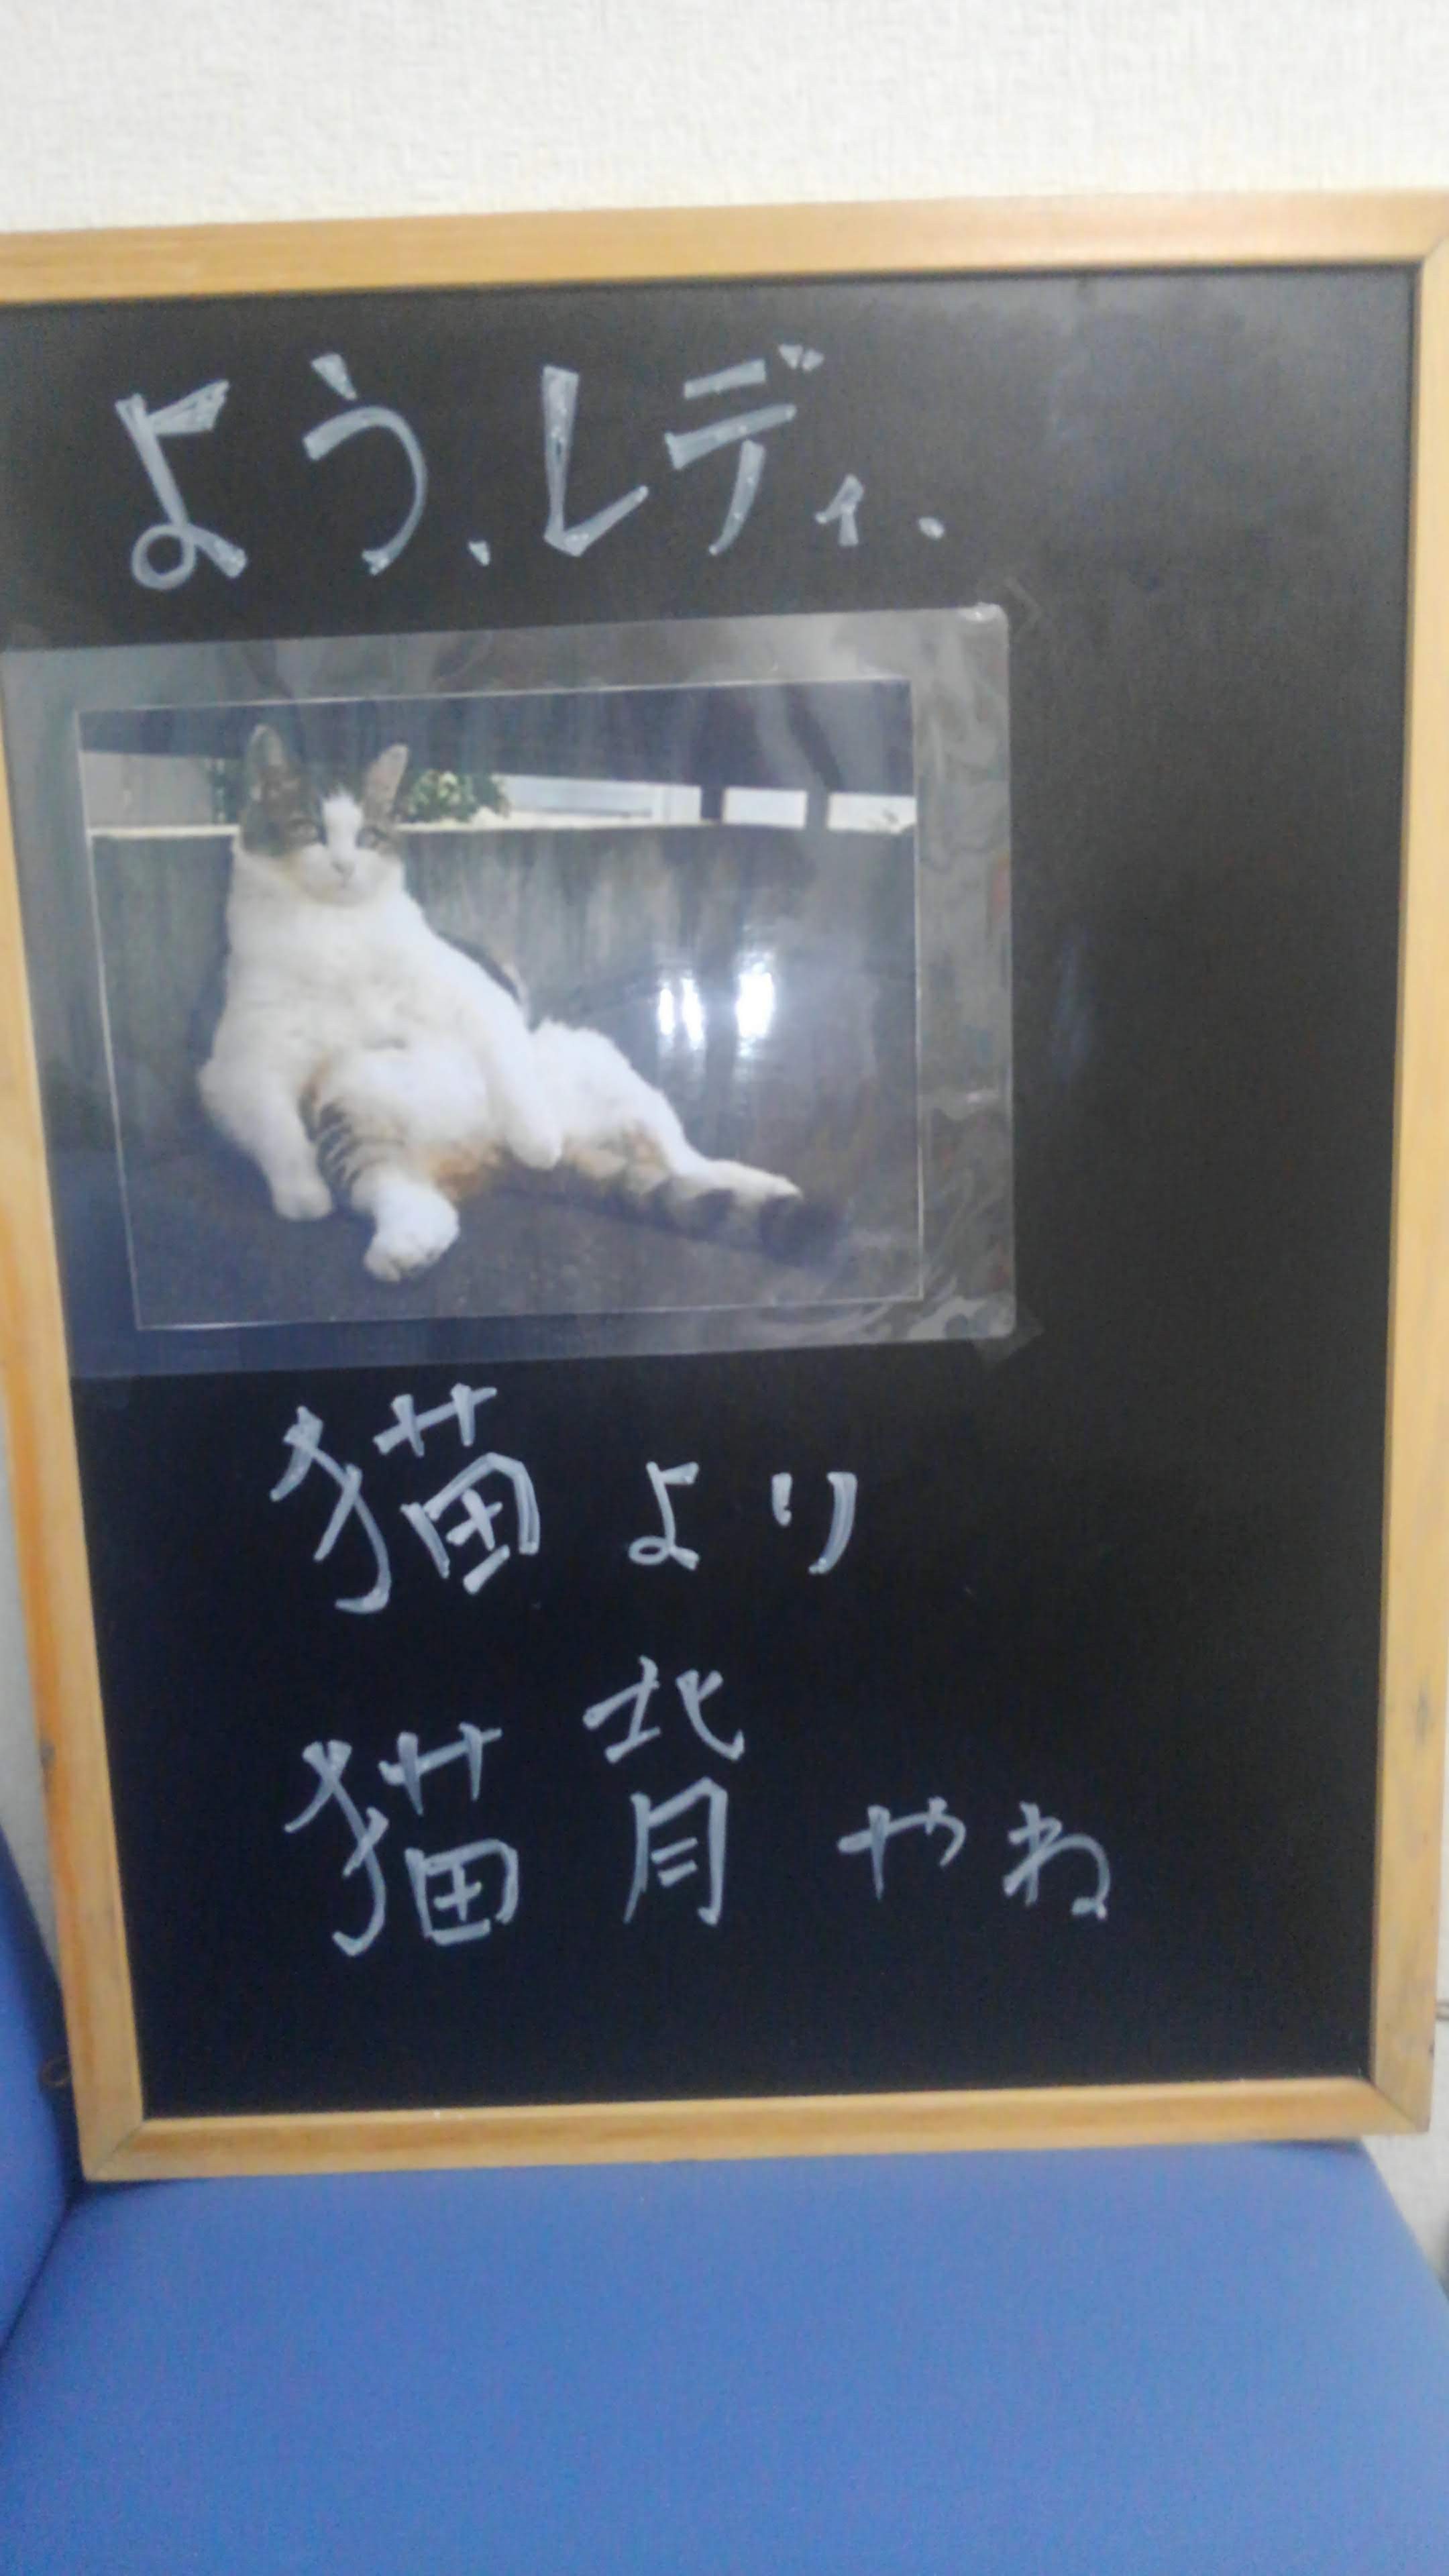 よう、レディ、
猫より
猫背やね